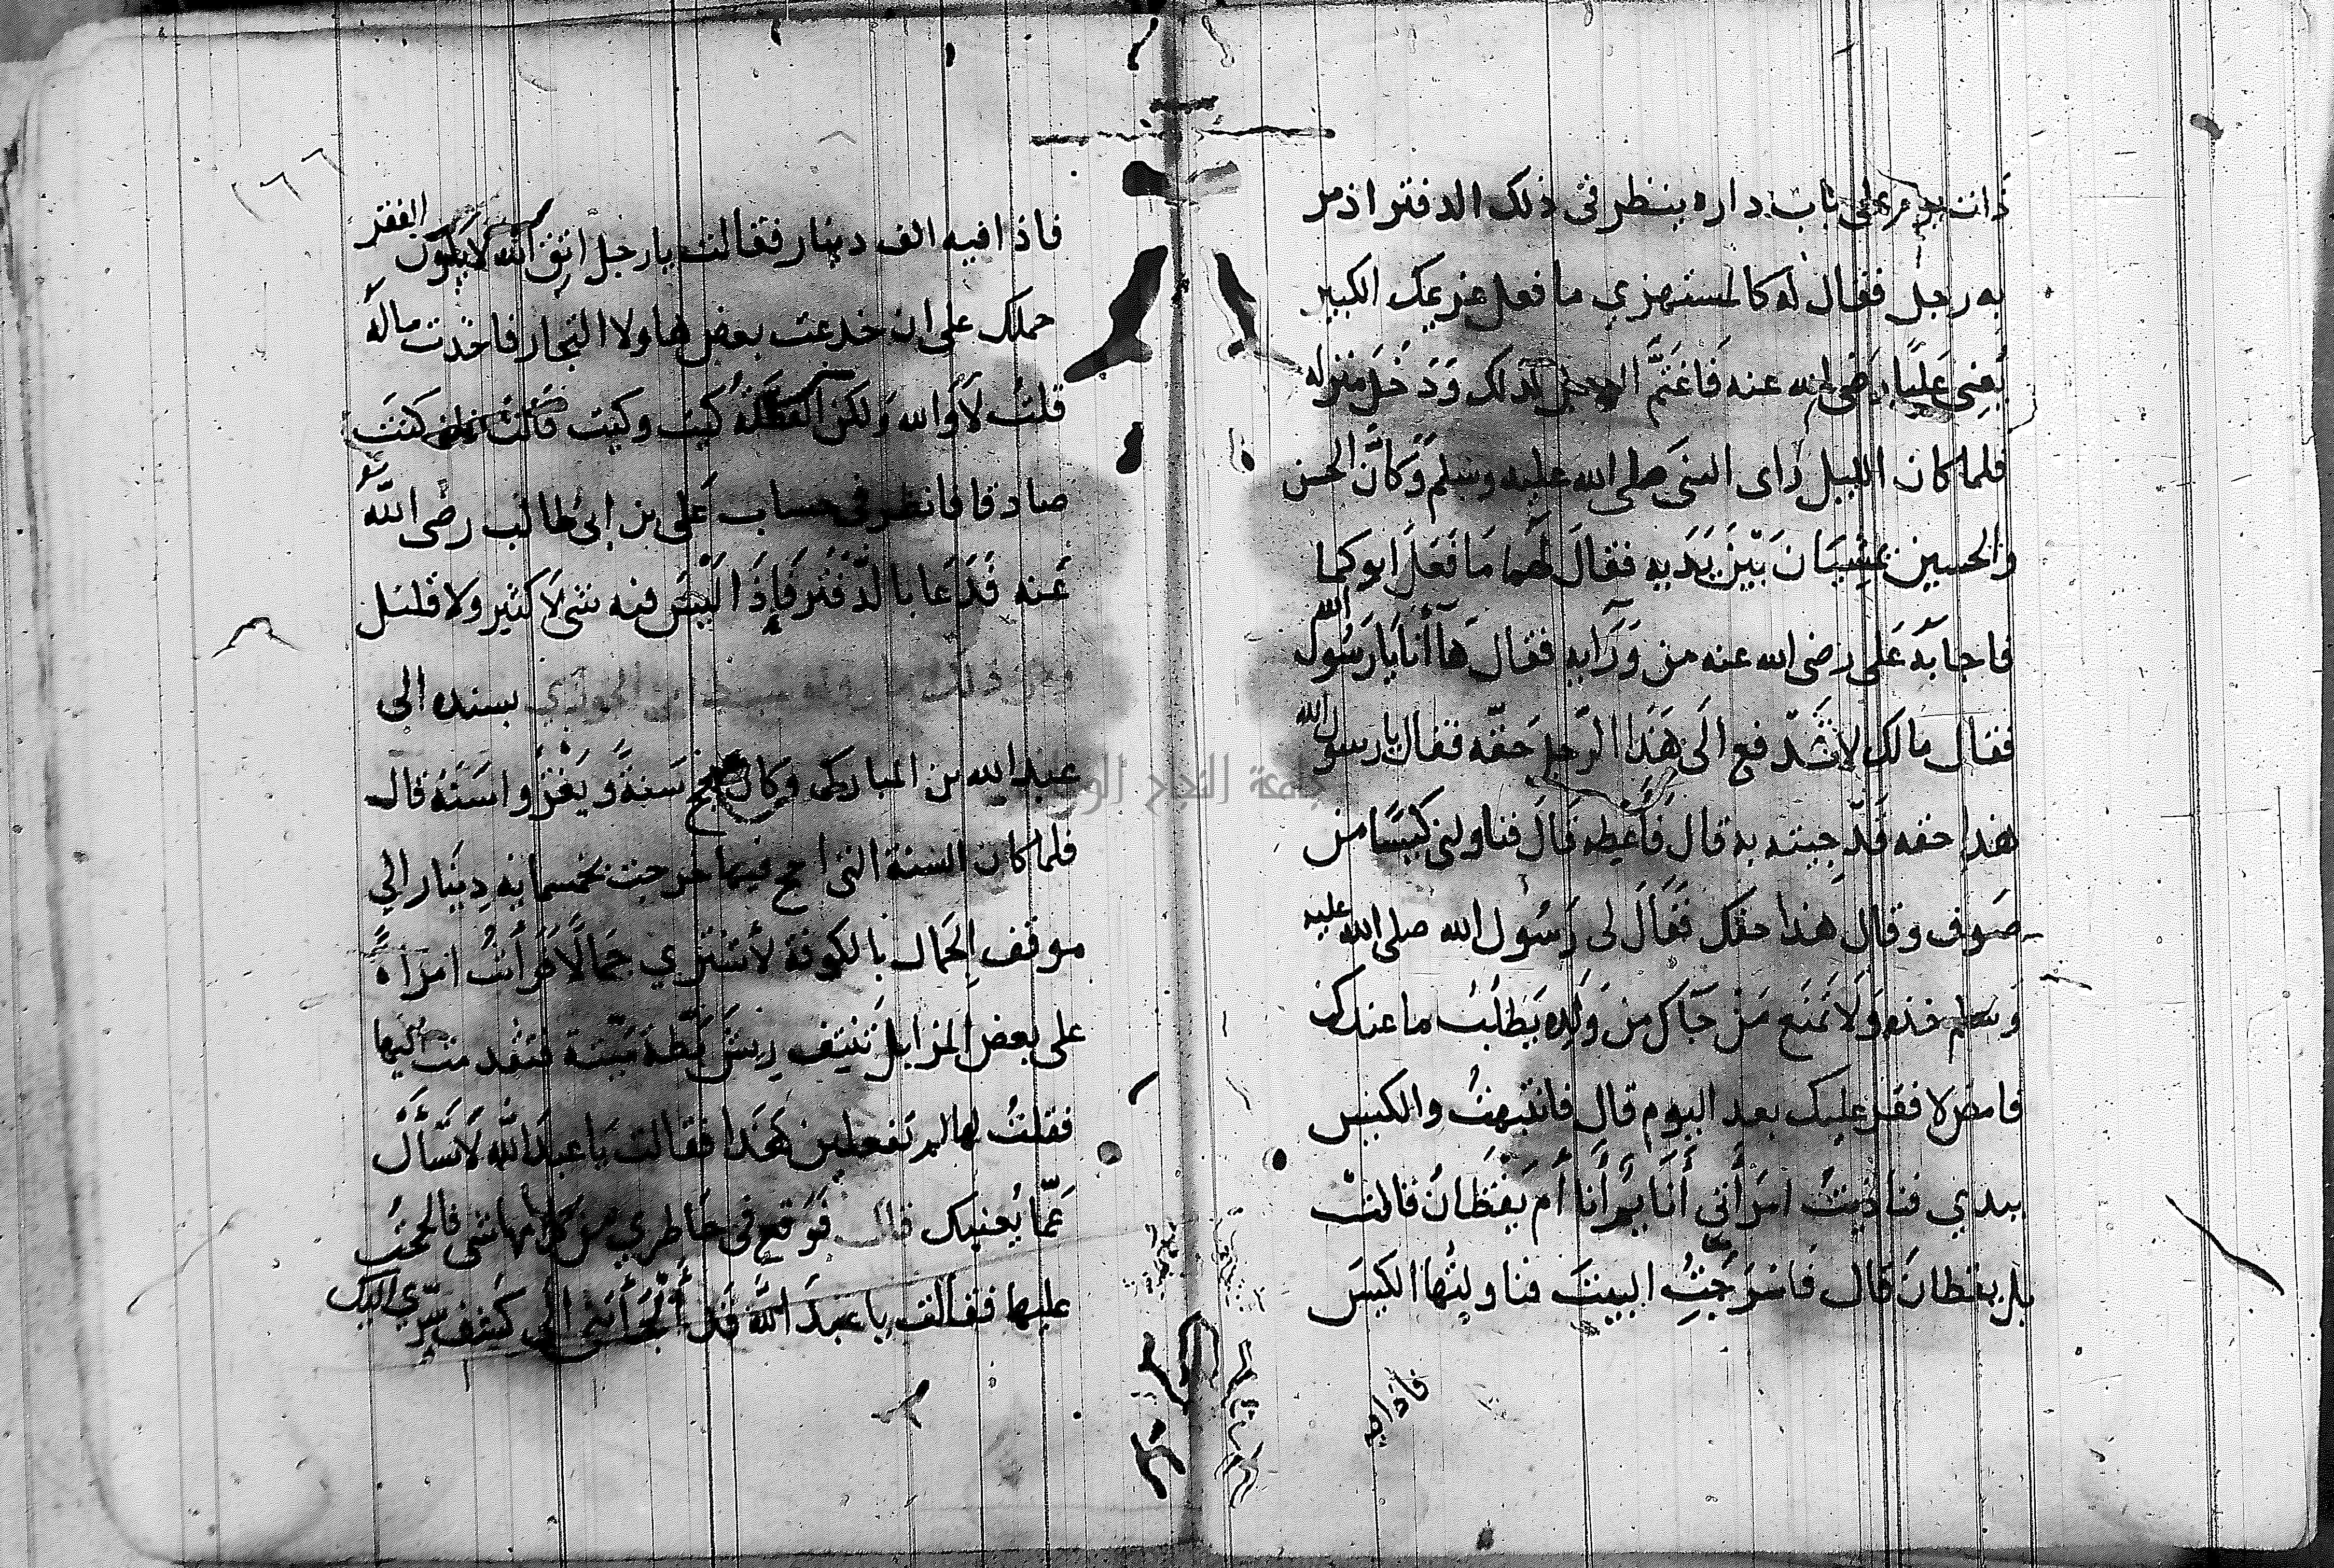 ذات يوم على باب داره ينظر فى ذلك الدفتر اذ مر
به رجل فقال له كالمستهزي ما فعل غريمك الكبير
يَعنِى عَليًا رَضى الله عنه فَاغتَمَّ الرجل لذلك وَدَخَلَ منزله
فلما كان الليل رَاى النبى صلى الله عليه وسلم وَكَانَ الحسن
والحسين يمشِيَان بَيْنَ يَدَيه فقالَ لهما مَا فَعَلَ ابوكما
فاجابَهُ عَلى رضى الله عنه من وَرَايه فقال هَا أنا يَا رَسُول الله
فقال مالك لا تَدفع الَى هَذَا الرّجل حَقّه فقال يا رسول الله
هذا حقه قَد جِيته به قال فَاَعطِه قَالَ فناولنى كيسًا من
صَوف وقال هَذا حقك فَقَالَ لى رَسُول الله صلى الله عليه
وَسَلم خذه وَلَا تمنَع مَن جَاك مِن وَلَدِه يَطلبُ ما عندك
فامض لا فقر عليك بعد اليوم قال فانتبهتُ والكيس
بيدي فناديتُ امرَأتى أنَا يم أنَا أم يقظانُ فالتْ
بل يقظانَ قال فاسرَجتُ البيتَ فناولتُها الكيسَ
فاذافيه
فاذافيه الف دينار فقالت يا رجل اتق الله لا يكون الفقر
حملك على ان خدعت بعض هاولا التجار فاخذت ماله
قلتُ لَا وَالله وَلكن القصَّة كيت وكيت قالت فان كنتَ
صادقا فانظر فى حساب عَلى بن ابى طالب رضى الله
عَنه فَدَعَا بالدّفتر فَاِذَا لَيْسَ فيه شى لَا كثير ولا قليل
الجوزي بسنده الى
عبد الله بن المبارك وَكان يحج سَنةً وَيَغْزُوا سَنَة قال
فلما كان السَنة التى احج فيها خرجت بخمسمايه دِينار الي
موقف الجمال بالكوفة لأشترِي جَمالًا فَرَأيتُ امرَاةً
على بعض المزابل تَنتِف رِيشَ بَطّة مَيّتة فتقدمت اليها
فقلتُ لها لم تفعلين هَذا فقالت يا عبدَ الله لَا تَسْألْ
عَمّا يُعنيك قال فَوَقع فى خَاطِري مِن كلامها شى فالححتُ
عليها فقالت يا عبدَ الله قَد ألجأتنى الى كَشف سِرّي اليك
جامعة النجاح